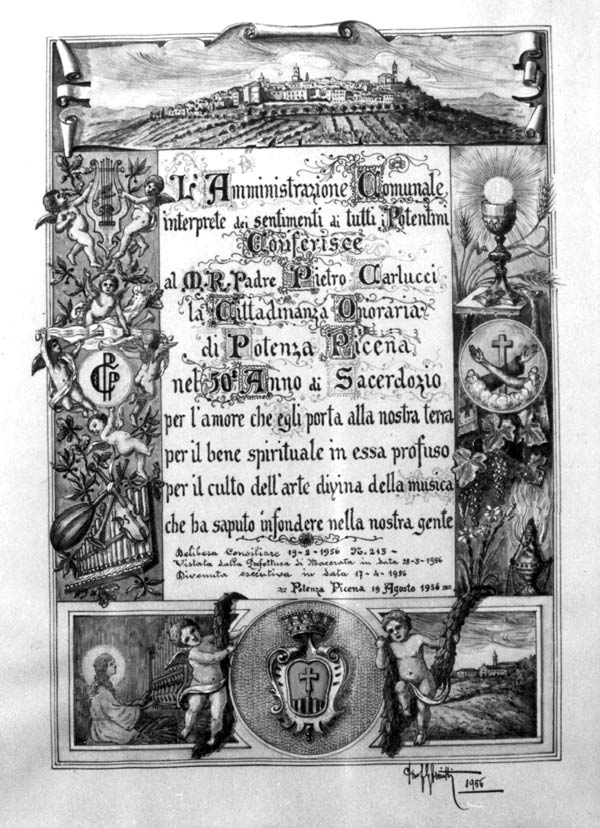 L'Amministrazione Comunale,
interprete dei sentimenti di tutti i Potentini
Conferisce
al M.R. Padre Pietro Carlucci
la Cittadinanza Onoraria
di Potenza Picena
nel 50º Anno di Sacerdozio
per l'amore che egli porta alla nostra terra
per il bene spirituale in essa profuso
per il culto dell'arte divina della musica
che ha saputo infondere nella nostra gente
Delibera Consiliare 19-2-1956 N. 213 -
Vistata dalla Prefettura di Macerata in data 28-3-1956
Divenuta esecutiva in data 17-4-1956
Potenza Picena 19 Agosto 1956
1956